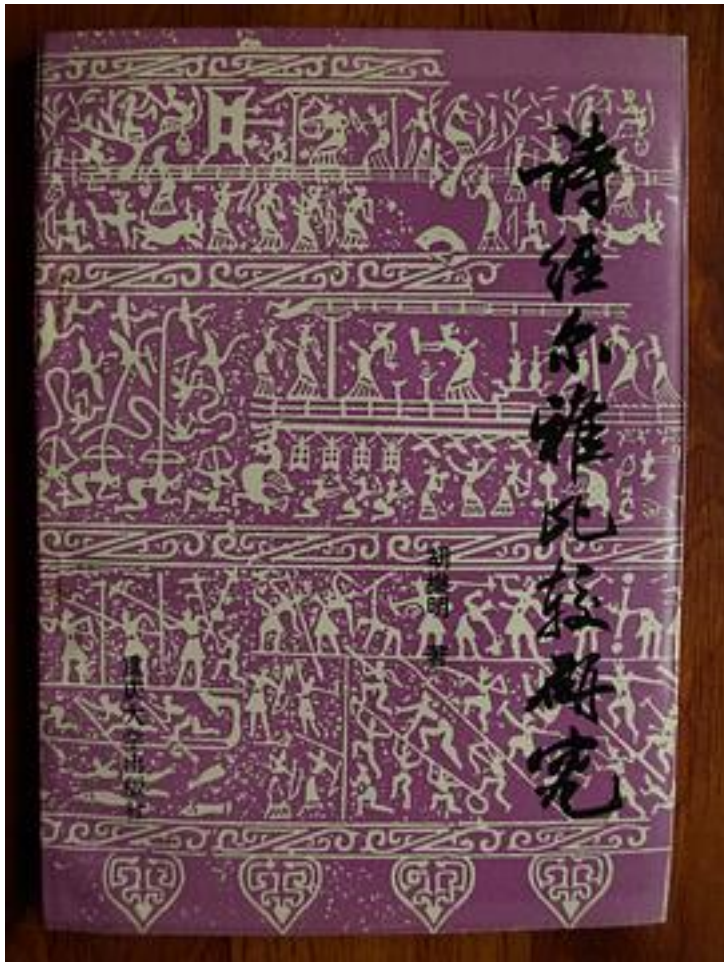 诗经尔雅比较研究
胡继明 著
重庆大学出版社